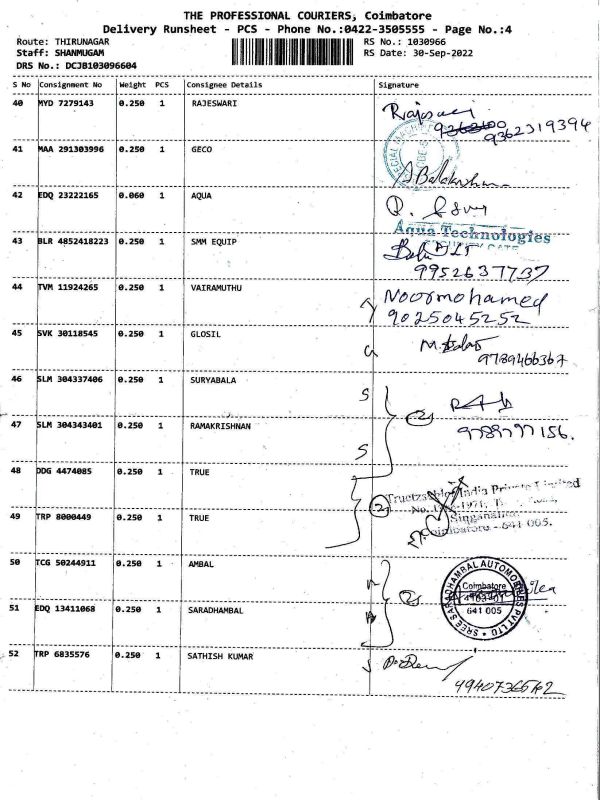 THE PROFESSIONAL COURIERS, Coimbatore
Delivery Runsheet - PCS - Phone No.:0422-3505555 - Page No.:4
Route: THIRUNAGAR RS No.: 1030966
Staff: SHANMUGAM RS Date: 30-Sep-2022
DRS No.: DCJB103096604
S No Consignment No Weight PCS Consignee Details Signature
40 MYD 7279143 0.250 1 RAJESWARI
9362319394
41 MAA 291303996 0.250 1 GECO
42 EDQ 23222165 0.060 1 AQUA
Aqua Technologies
43 BLR 4852418223 0.250 1 SMM EQUIP
9952637737
44 TVM 11924265 0.250 1 VAIRAMUTHU Noormohamed
9025045252
45 SVK 30118545 0.250 1 GLOSIL
9789466367
46 SLM 304337406 0.250 1 SURYABALA S
2
47 SLM 304343401 0.250 1 RAMAKRISHNAN
9789797156.
S
48 DDG 4474085 0.250 1 TRUE
India Private Limited
2
49 TRP 8000449 0.250 1 TRUE
Coimbatore - 641 005.
50 TCG 50244911 0.250 1 AMBAL
SREE SARADHAMBAL AUTOMOBILES PVT LTD
Coimbatore
641 005
2
51 EDQ 13411068 0.250 1 SARADHAMBAL
52 TRP 6835576 0.250 1 SATHISH KUMAR